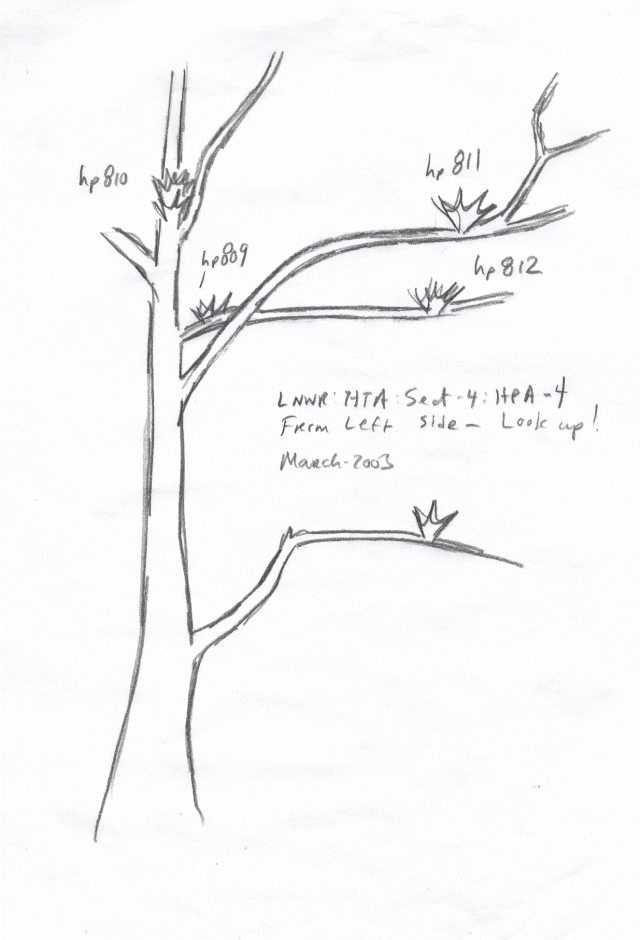 hp 810
hp 811
hp809
hp 812
LNWR: HTA: Sect-4: HPA-4
From Left side - Look up!
March-2003